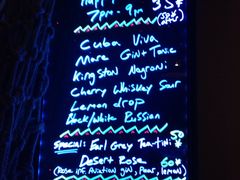 Happy
7pm - 9pm
35*
Cuba Viva
More Gin + Tonic
Kingston Negroni
Cherry Whiskey Sour
Lemon drop
Black/White Russian
50
SPECIAL: Earl Grey Tea-tini
Desert Rose 60*
(Rose inf. Aviation gin, Pear, lemon)